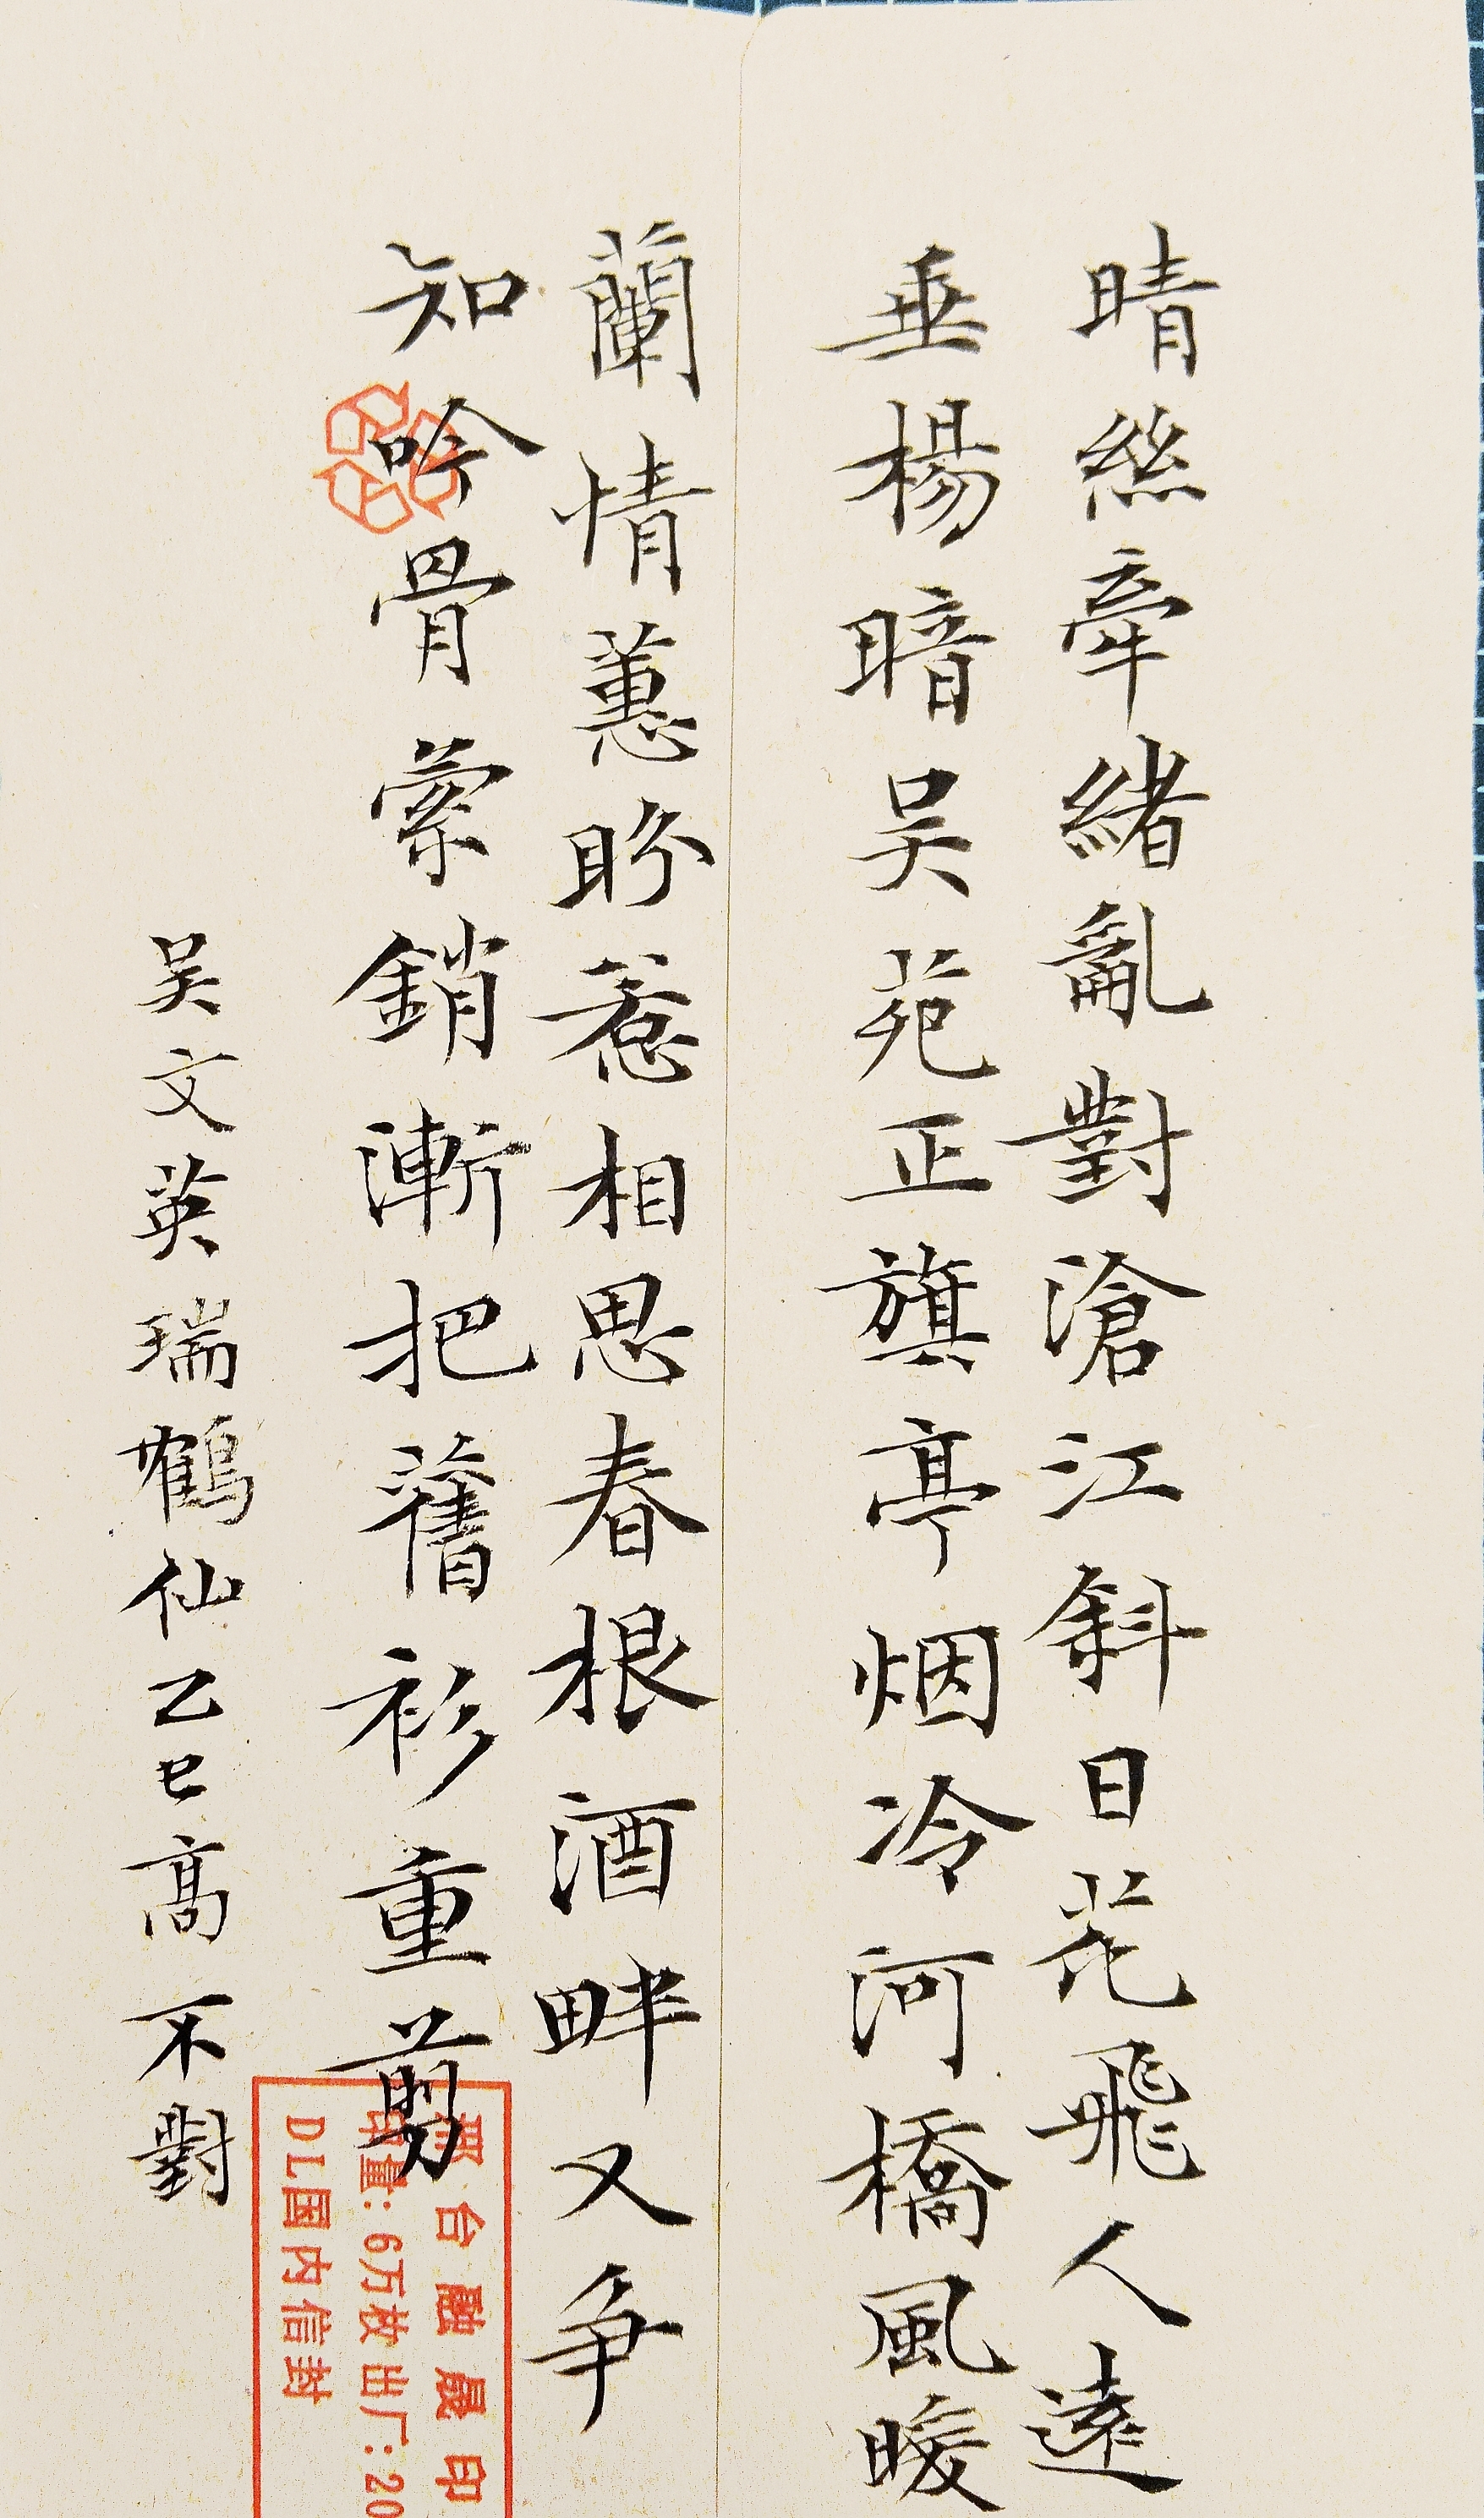 晴絲牽緒亂對滄江斜日花飛人遠
垂楊暗吴苑正旗亭烟冷河橋風暖
蘭情蕙盼惹相思春根酒畔又争
知吟骨縈銷漸把舊衫重剪
吴文英瑞鶴仙乙巳高不對
台融晟印
印量:6万枚出厂:20
DL国内信封